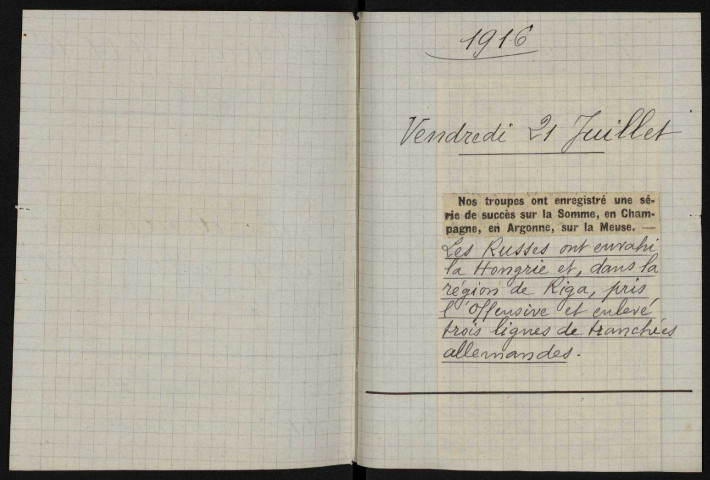 1916
Vendredi 21 Juillet
Nos troupes ont enregistré une sé-
rie de succès sur la Somme, en Cham-
pagne, en Argonne, sur la Meuse. —
Les Russes ont envahi
la Hongrie et, dans la
région de Riga, pris
l'offensive et enlevé
trois lignes de tranchées
allemandes.